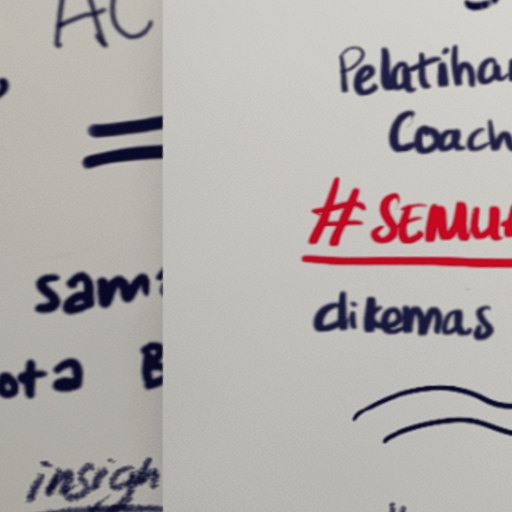 AC
sam
ota B
insigh
Pelatiha
Coach
#SEMU
dikemas